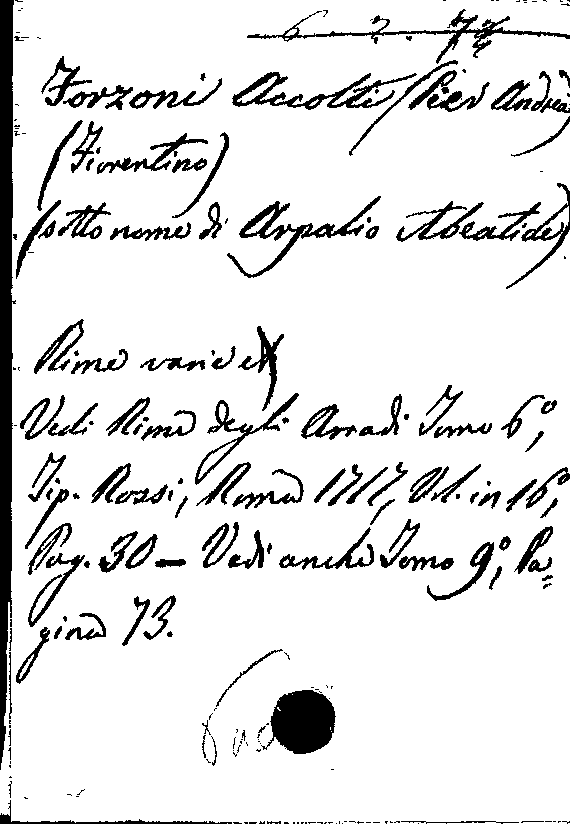 6. 2.
Forzoni Accolti (Pier Andrea)
(Fiorentino)
(sotto nome di Arpalio Abeatide)
Rime varie
Vedi Rime degli Arcadi Tomo 6º,
Tip. Rossi, Roma 1717, Vol. in 16º,
Pag. 30 — Vedi anche Tomo 9º, Pa=
gina 73.